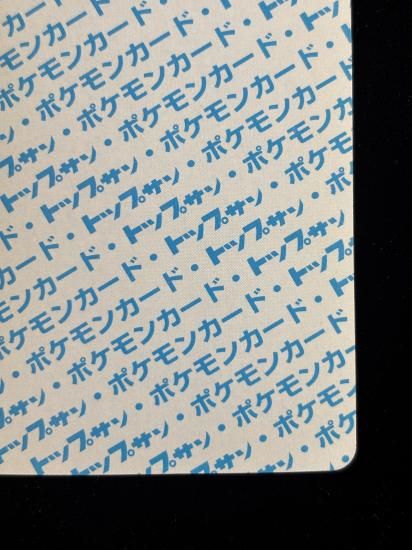 ンカード・
モンカード・
ポケモンカード・
・ポケモンカード・
トップサン・ポケモンカード・
トップサン・ポケモンカード・
ド・トップサン・ポケモンカード
カード・トップサン・ポケモン
ンカード・トップサン・ポ
ケモンカード・トップサン・
ポケモンカード・トップサン
・ポケモンカード・ト
トップサン・ポケモンカード・
トップサン・ポケモンカード
トップサン・ポケモン
トップサン・ポ